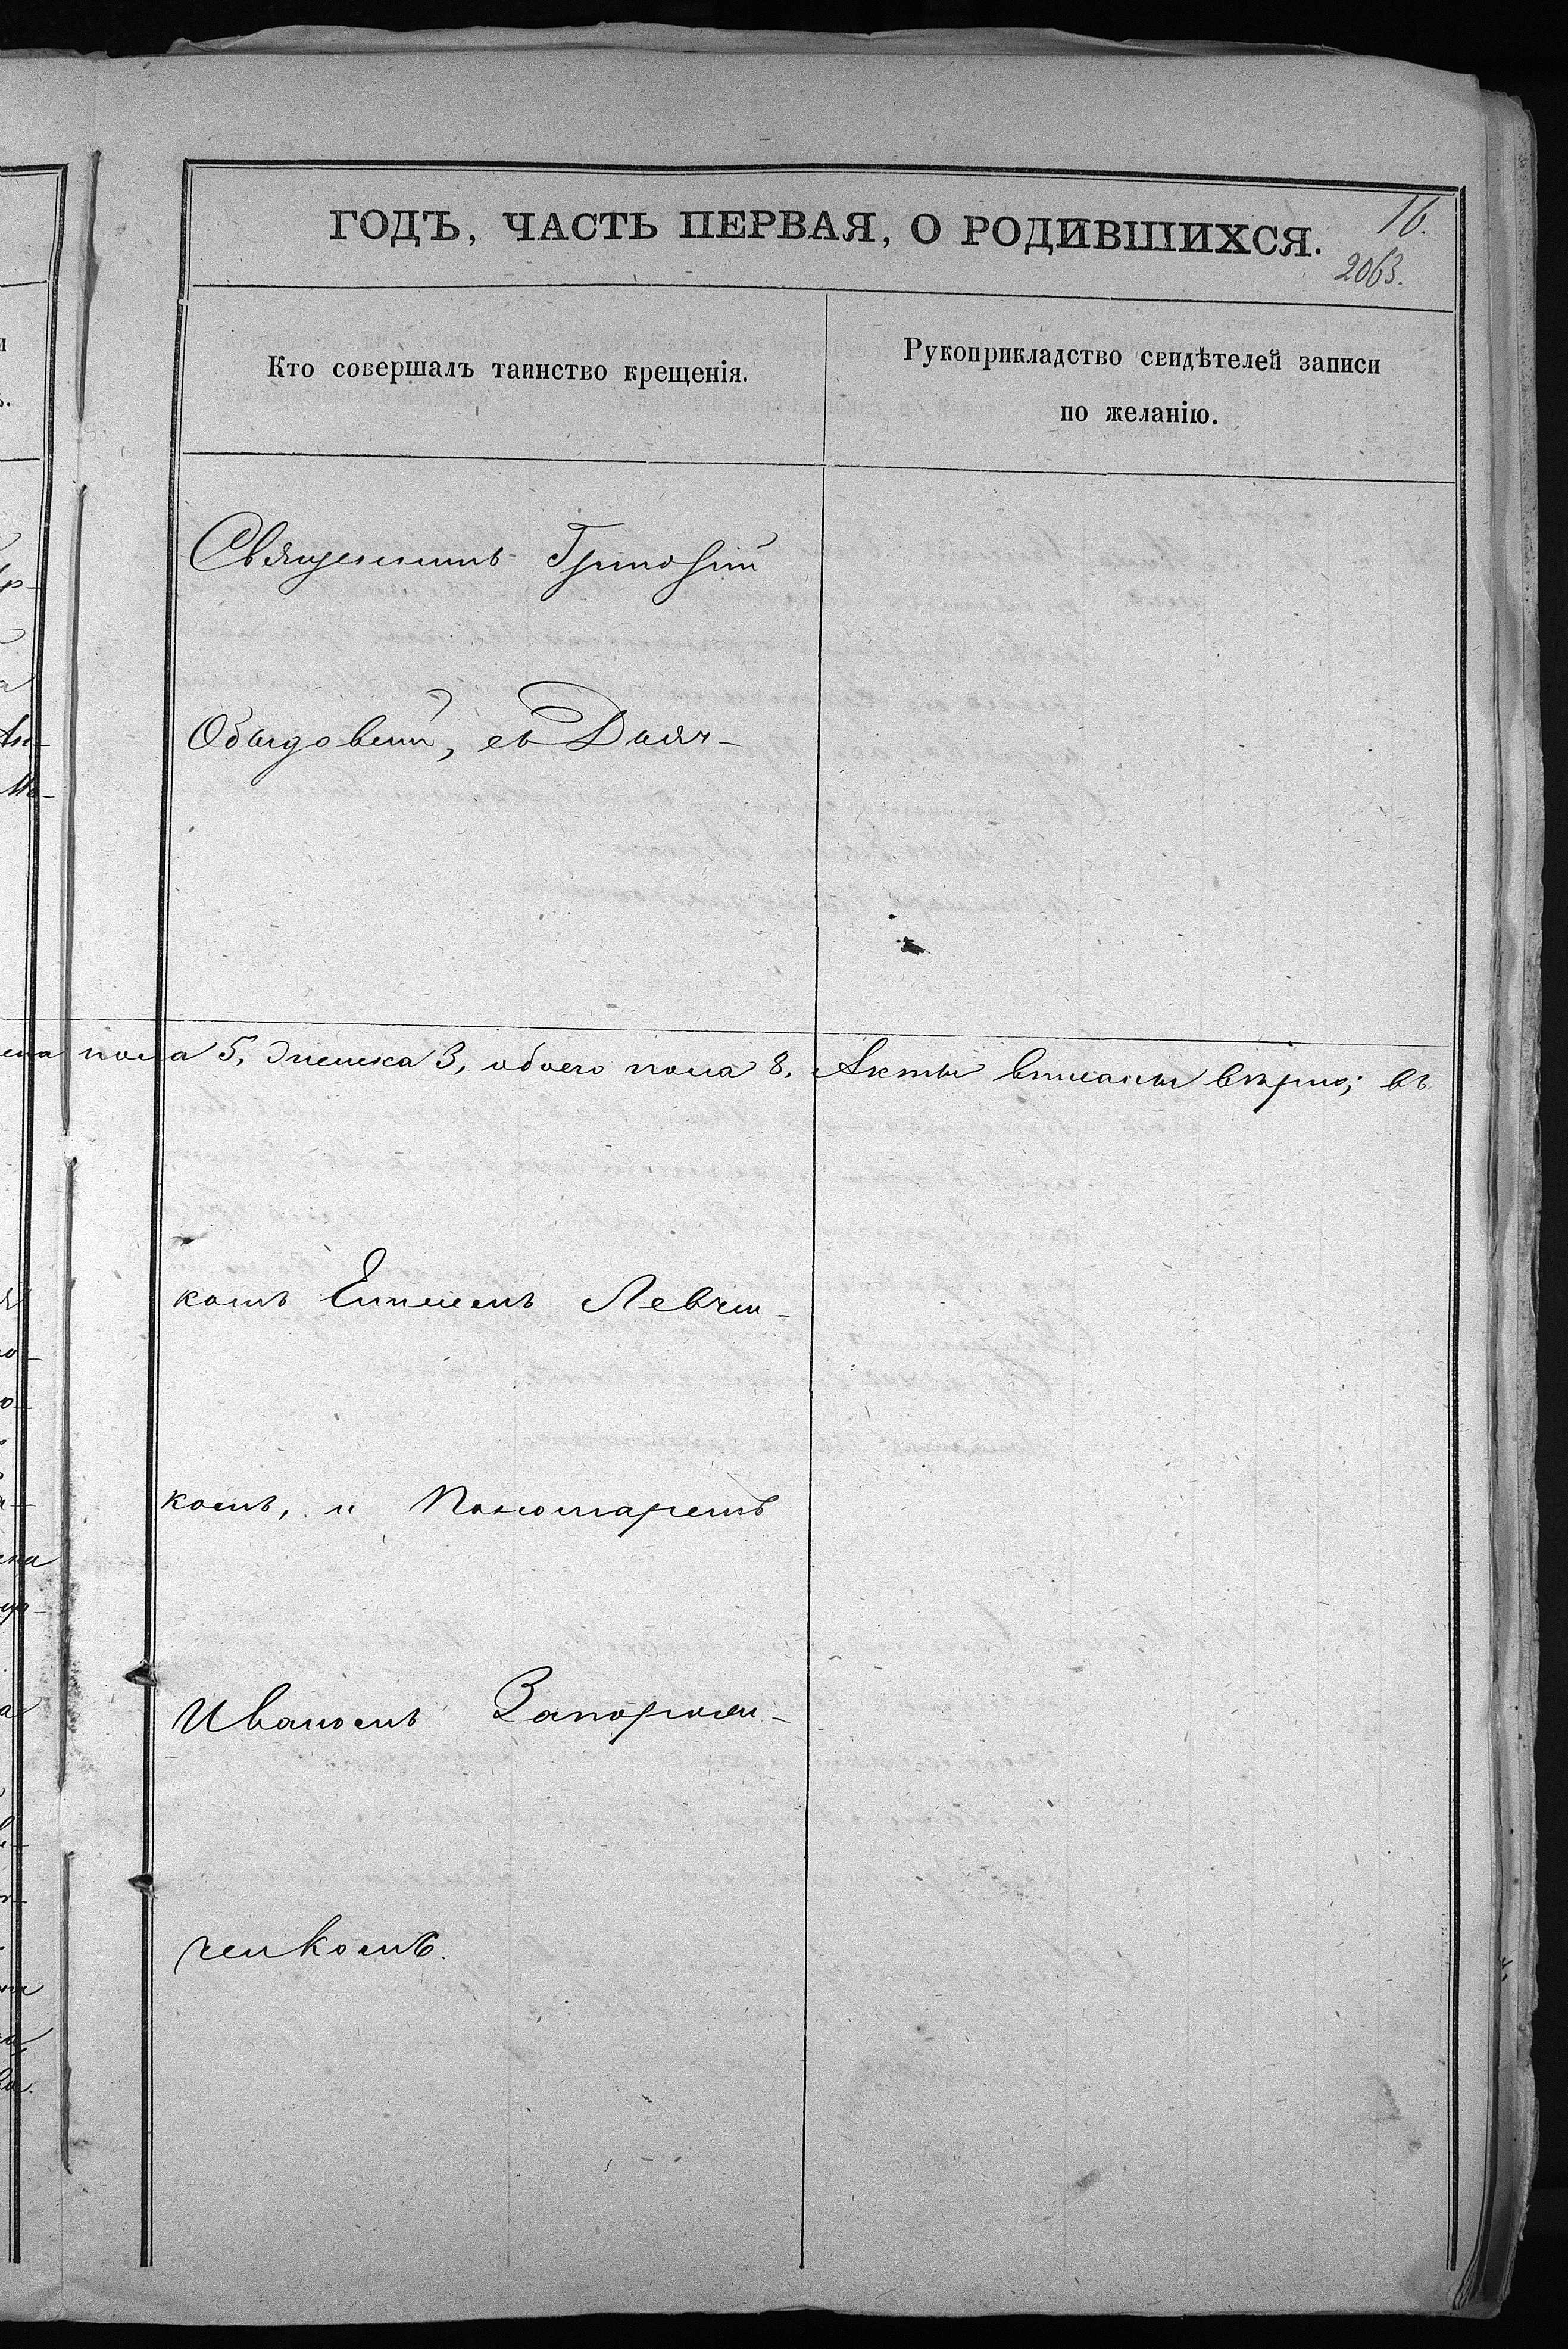 ГОДЪ, ЧАСТЬ ПЕРВАЯ, О РОДИВШИХСЯ.
16.
2063.
Кто совершалъ таинство крещенія.
Рукоприкладство свидѣтелей записи
по желанію.
Священникъ Григорій
Обыдовскій, съ Дьяч-
пола 5, женска 3, обоего пола 8. Акты вписаны вѣрно; въ
комъ Левчен-
комъ, и Пономаремъ
Иваномъ Запорож-
ченкомъ.